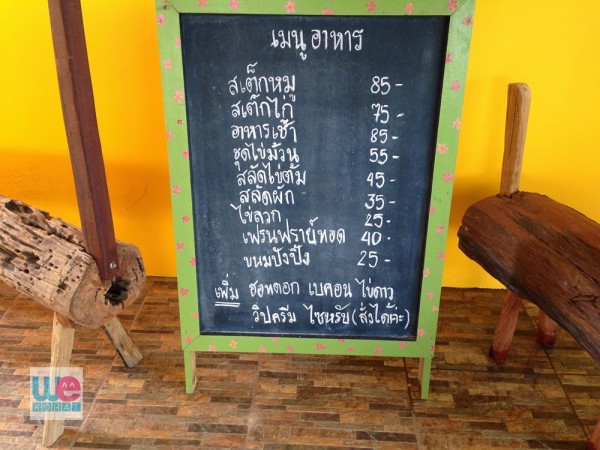 เมนูอาหาร
สเต็กหมู 85-
สเต๊กไก่ 75-
อาหารเช้า 85-
ชุดไข่ม้วน 55-
สลัดไข่ต้ม 45-
สลัดผัก 35-
ไข่ลวก 25-
เฟรนฟรายน์ทอด 40-
ขนมปังปิ้ง 25-
เพิ่ม ฮอทดอก เบคอน ไข่ดาว
วิปครีม ไซหรับ (สั่งได้ค่ะ)
we
KORAT